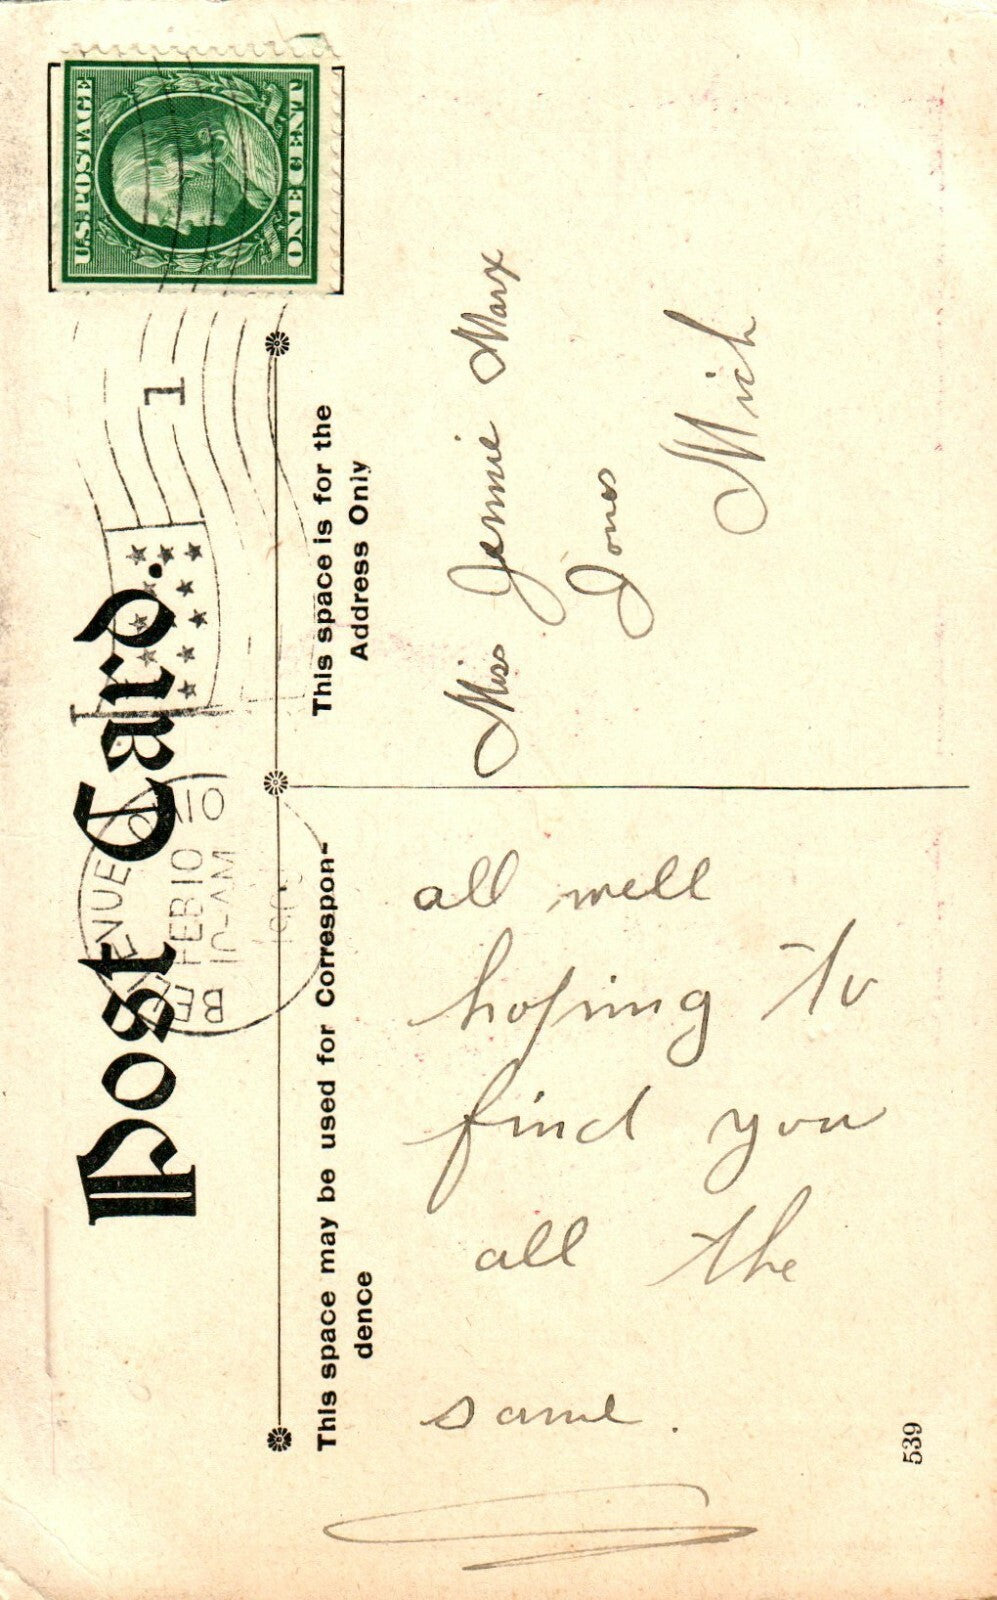 U.S. POSTAGE
ONE CENT
1
FEB 10
Post Card.
This space may be used for Correspon-
dence
This space is for the
Address Only
all well
hoping to
find you
all the
same.
Miss Jennie Marx
Jones
Mich
539